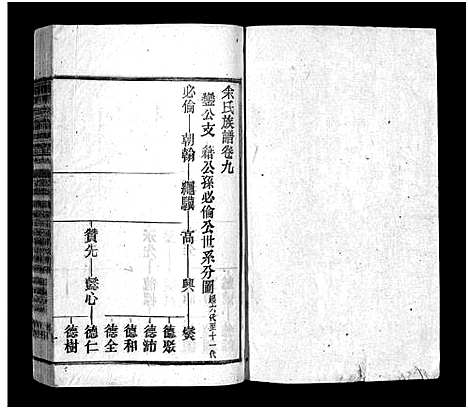 余氏族譜卷九
鑾公支 緒公孫必倫公世系分圖 六代至十一代
必倫 朝翰 繩驥 高 興 燮
德聚
德沛
德和
德全
贊先 懿心 德仁
德樹